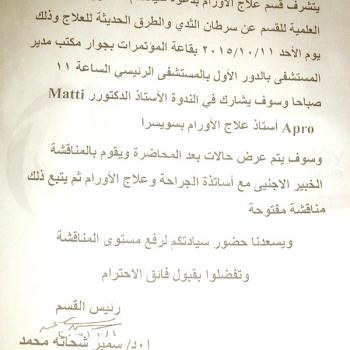 يتشرف قسم علاج الأورام بدعوة
العلمية للقسم عن سرطان الثدي والطرق الحديثة للعلاج وذلك
يوم الأحد ٢٠١٥/١٠/١١ بقاعة المؤتمرات بجوار مكتب مدير
المستشفى بالدور الأول بالمستشفى الرئيسي الساعة ١١
صباحا وسوف يشارك في الندوة الأستاذ الدكتورر Matti
Apro أستاذ علاج الأورام بسويسرا
وسوف يتم عرض حالات بعد المحاضرة ويقوم بالمناقشة
الخبير الاجنبى مع أساتذة الجراحة وعلاج الأورام ثم يتبع ذلك
مناقشة مفتوحة
ويسعدنا حضور سيادتكم لرفع مستوى المناقشة
وتفضلوا بقبول فائق الاحترام
رئيس القسم
ا٠د/ سمير شحاته محمد